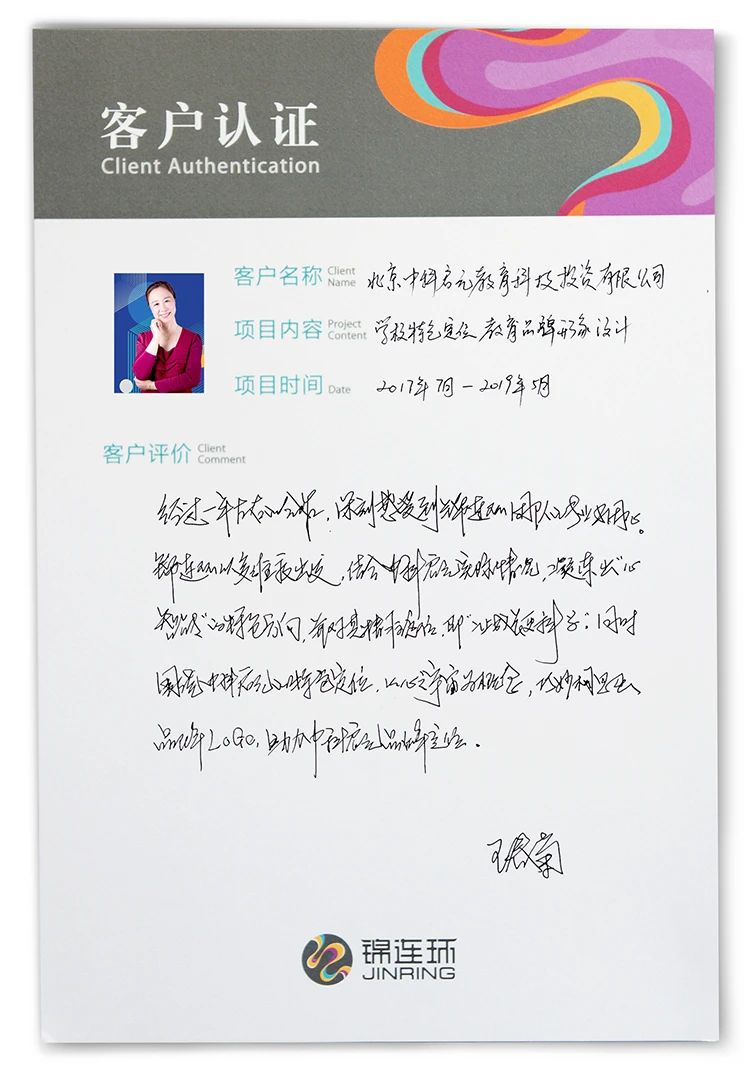 客户认证
Client Authentication
客户名称 Client Name 北京中科启元教育科技投资有限公司
项目内容 Project Content 学校特色定位 教育品牌形象设计
项目时间 Date 2017年7月-2019年5月
客户评价 Client Comment
经过一年左右的合作，深刻感受到锦连环团队的专业和用心。
锦连环以多维度出发，结合中科启元实际情况，凝练出“心
的特色，有对其精准定位，即 同时
围绕中科启元的特色定位，以心之宇宙为概念，巧妙构思出
品牌LOGO，助力中科启元品牌
锦连环
JINRING